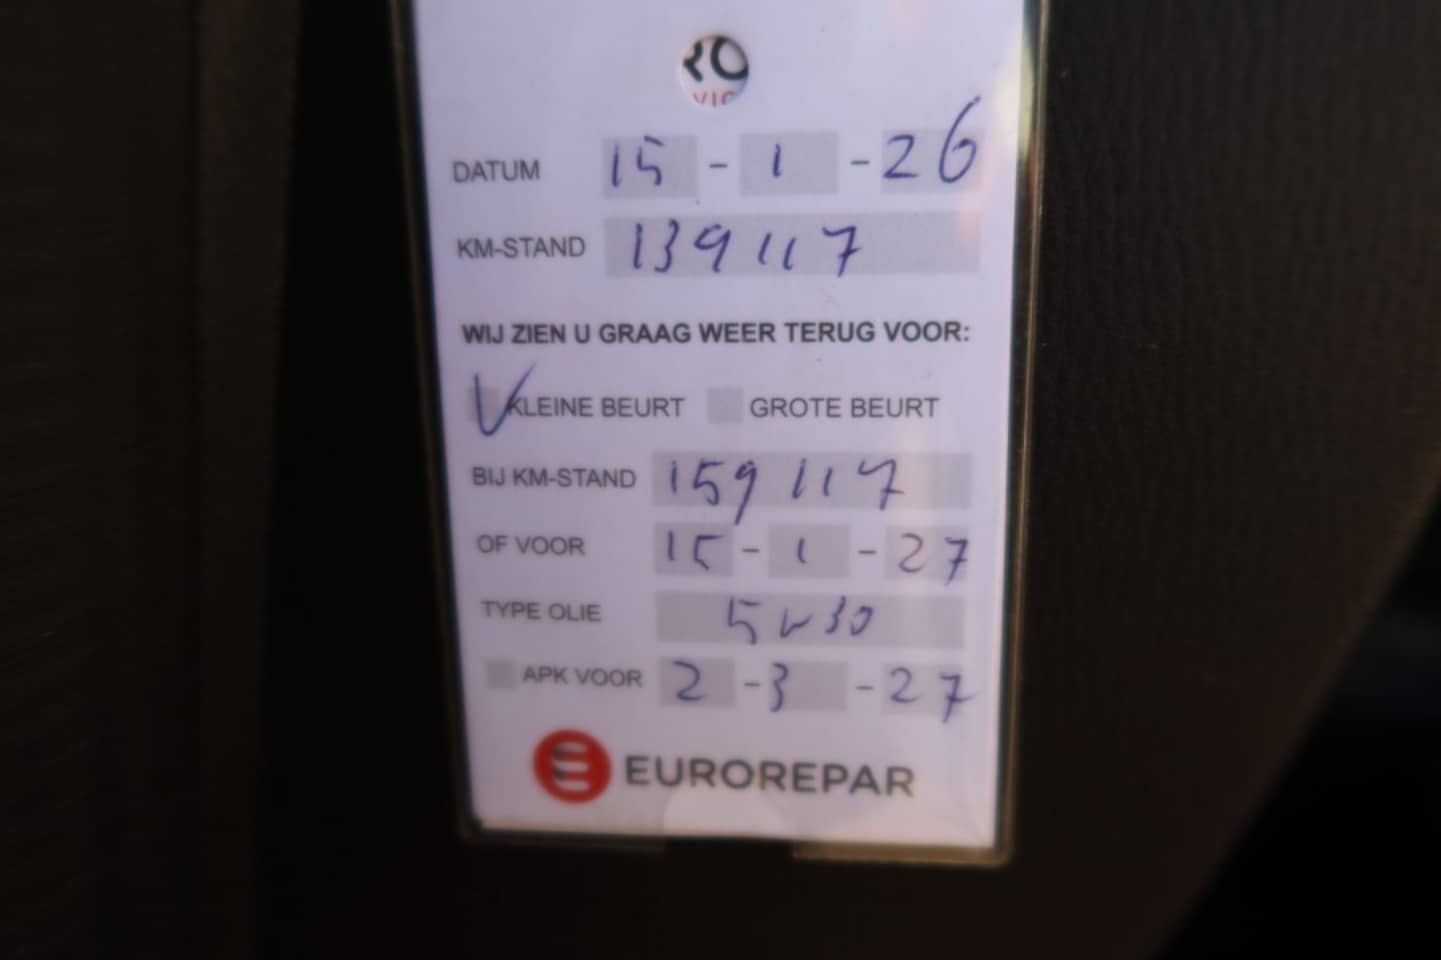 RO
VIC
DATUM 15 - 1 - 26
KM-STAND 139117
WIJ ZIEN U GRAAG WEER TERUG VOOR:
KLEINE BEURT GROTE BEURT
BIJ KM-STAND 159117
OF VOOR 15 - 1 - 27
TYPE OLIE 5w30
APK VOOR 2 - 3 - 27
EUROREPAR